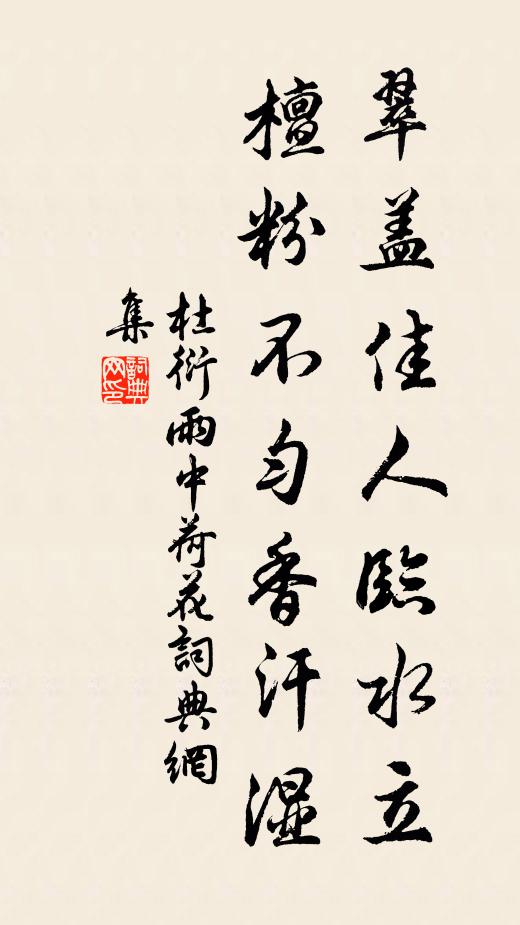 翠盖佳人臨水立
檀粉不匀香汗湿
杜衍雨中荷花詞典網
集
詞典
网印